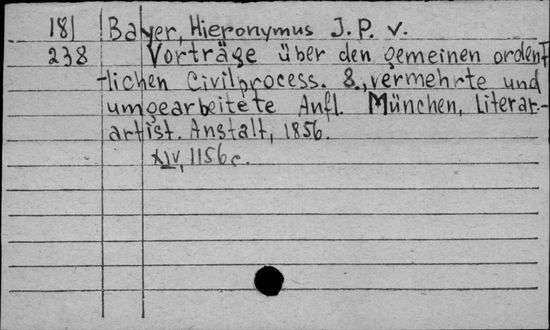 181 Bayer, Hieronymus J. P. v.
238 Vorträge über den gemeinen ordent-
lichen Civilprocess. 8., vermehrte und
umgearbeitete Aufl. München, Literar.-
artist. Anstalt, 1856.
XIV, 1156 c.